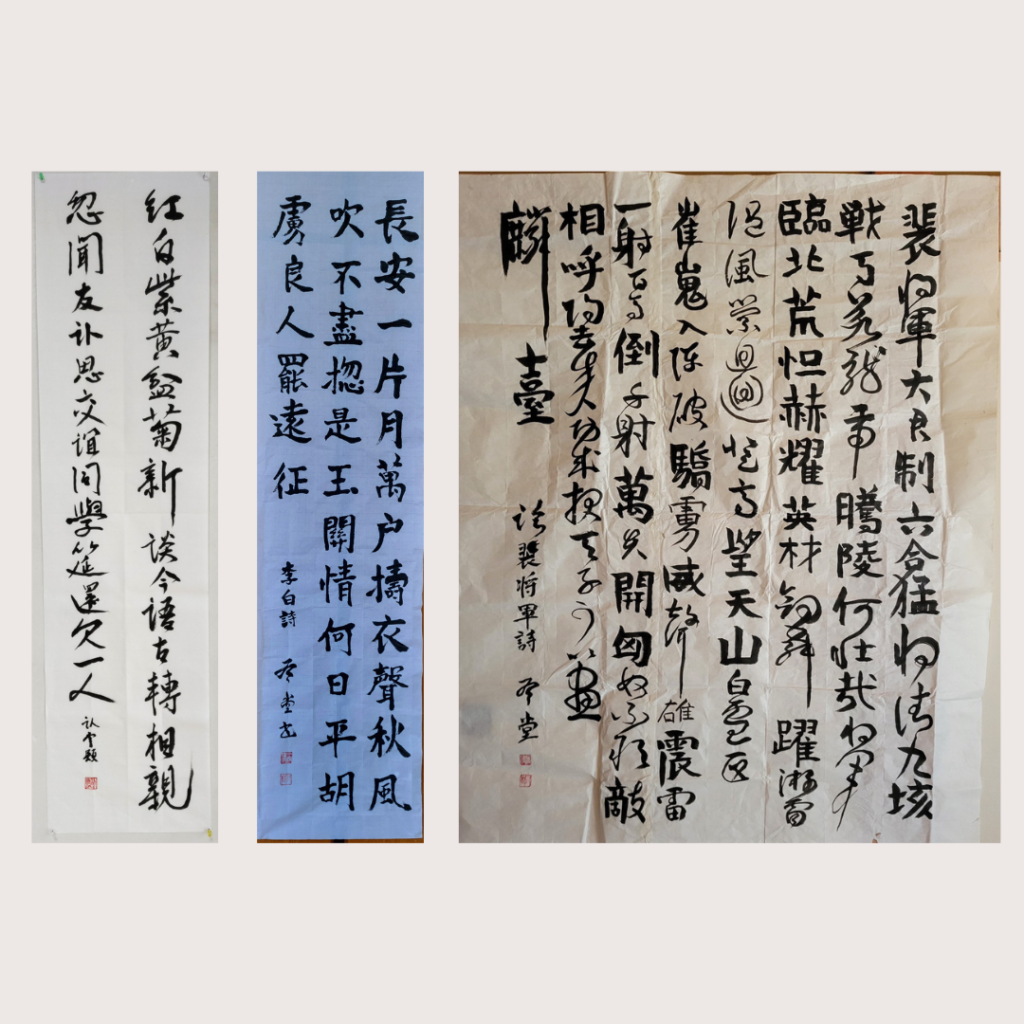 紅白紫黃盆菊新談今語古轉相親
忽聞友訃思交誼同學筵還欠一人
長安一片月萬户擣衣聲秋風
吹不盡揔是玉關情何日平胡
虜良人罷遠征
李白詩
裴將軍大君制六合猛將清九垓
戦馬若龍虎騰陵何壯哉將軍
臨北荒怛赫耀英材劍舞躍游電
隨風縈且迴登高望天山白雲正
崔嵬入陣破驕虜威聲雄震雷
一射百馬倒再射萬夫開匈奴不敢敵
相呼歸去來功成報天子可以畫
麟臺
臨裴將軍詩